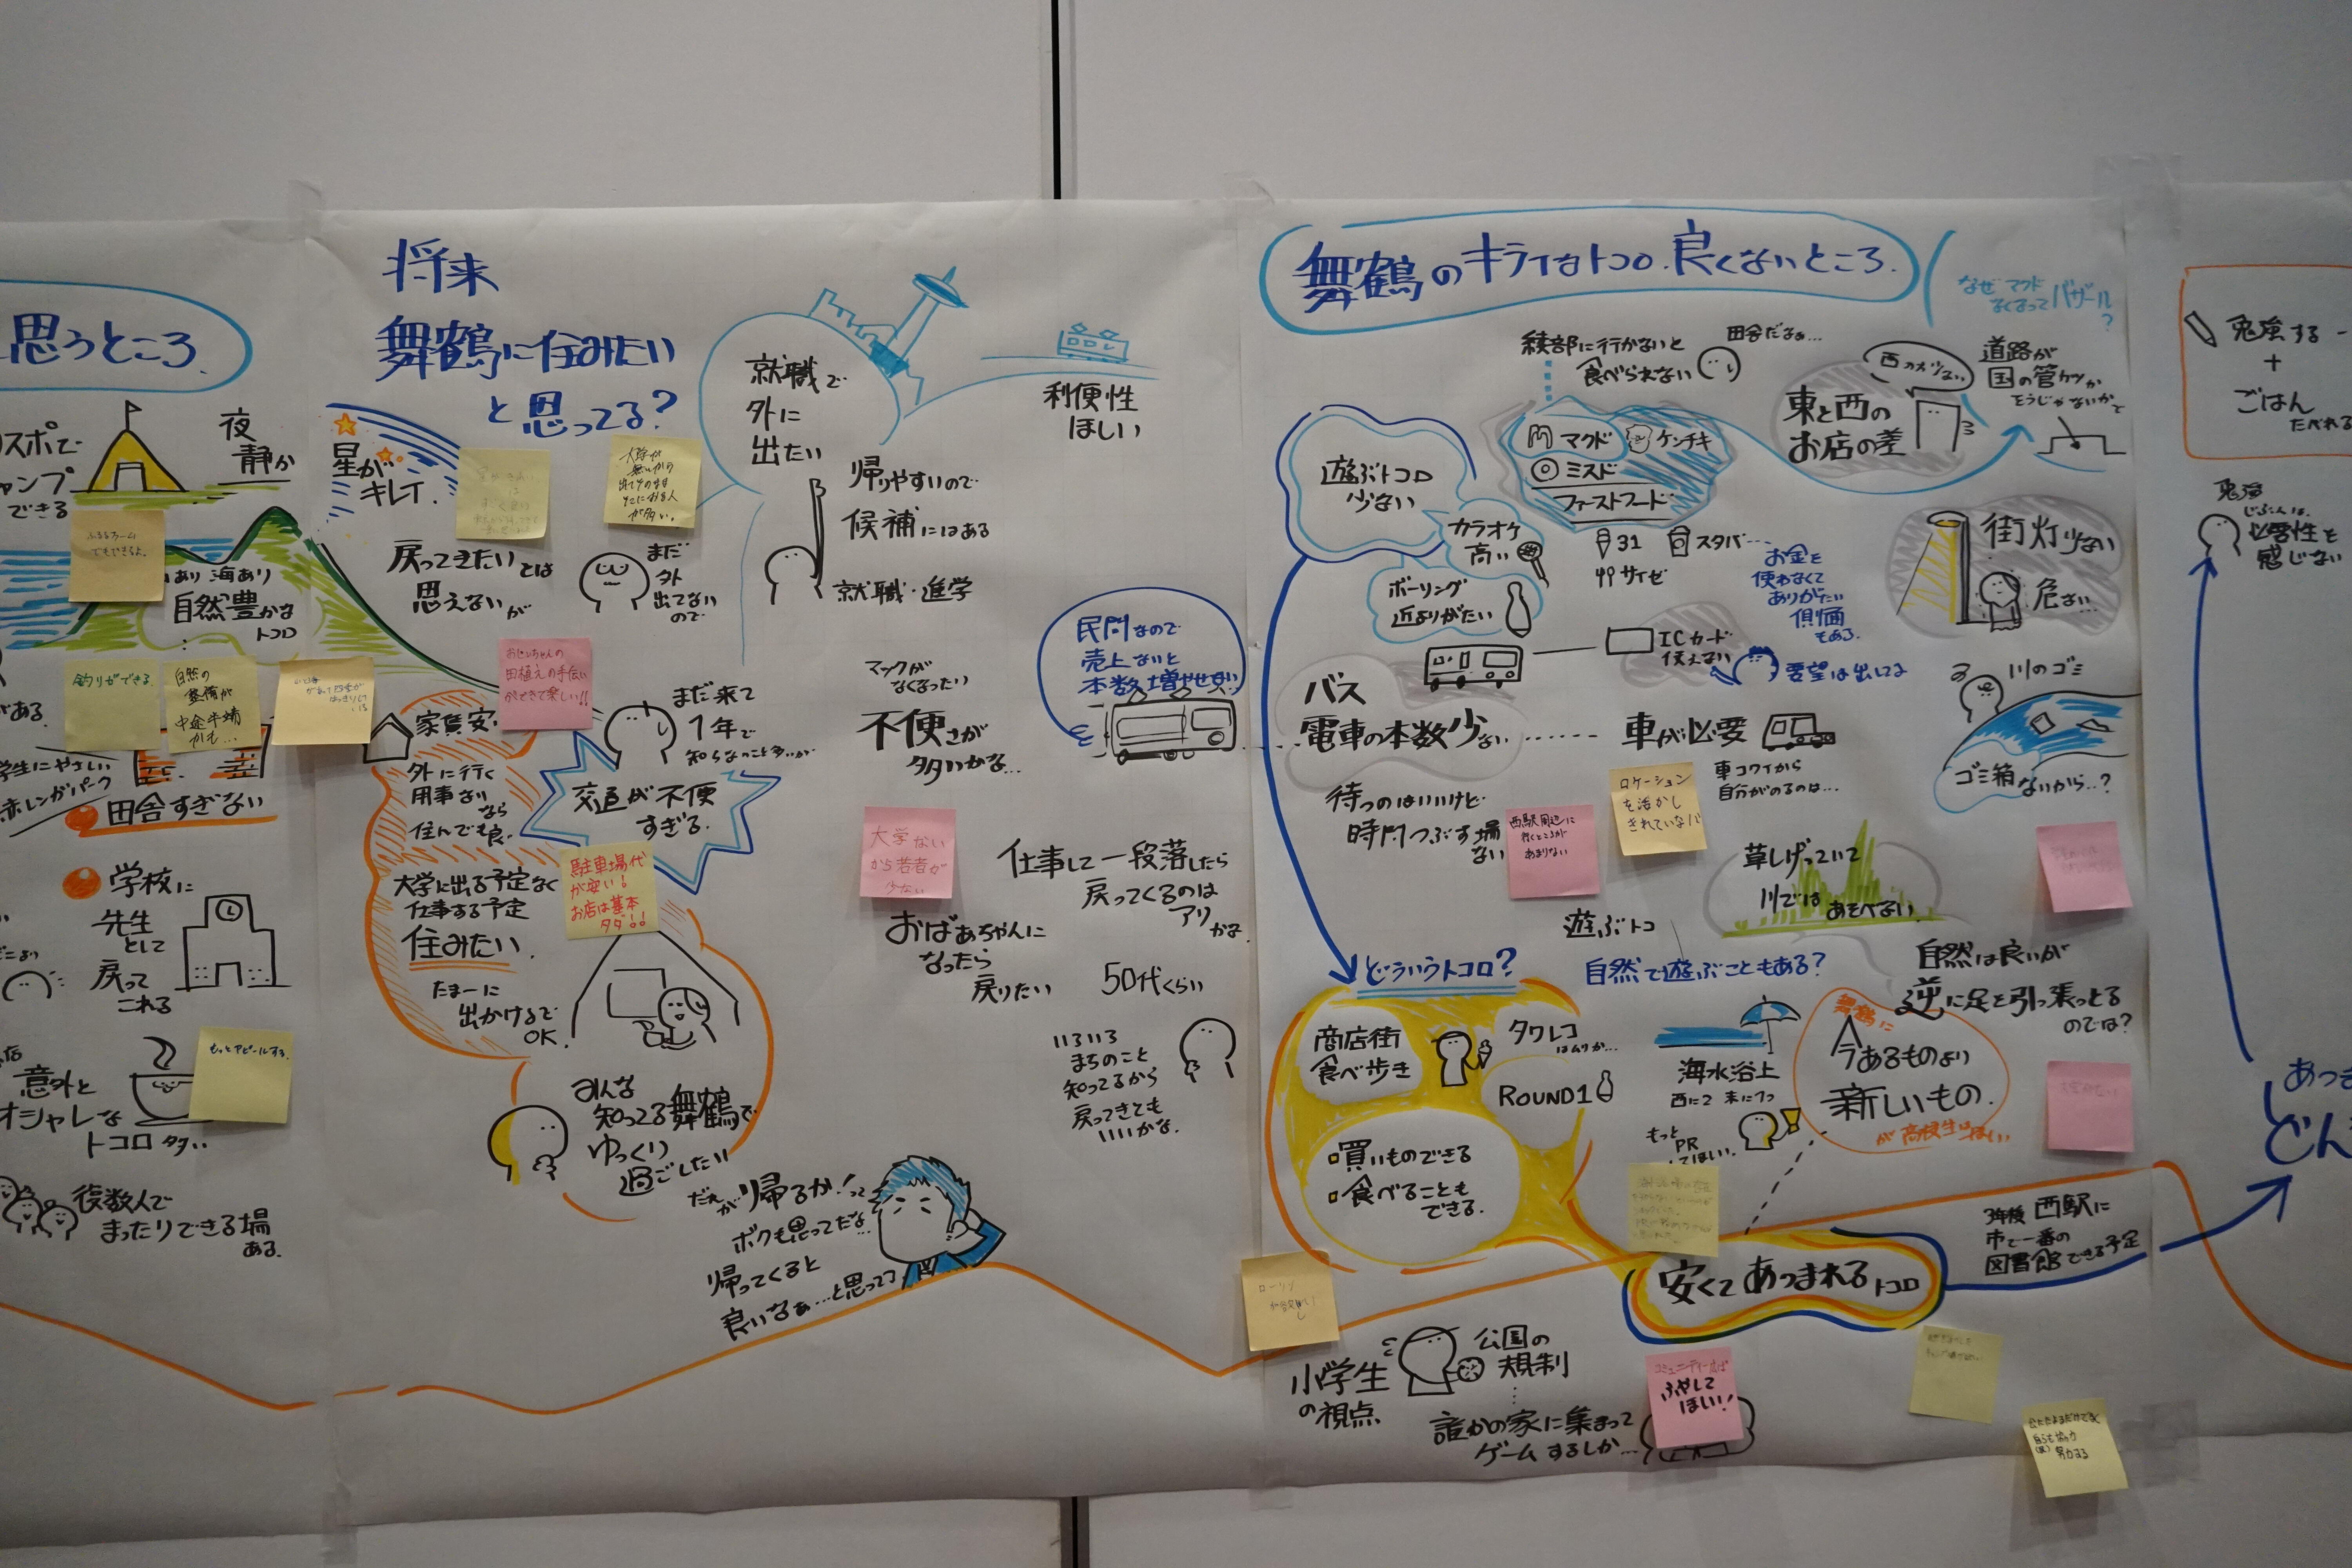 思うところ
キャンプ
できる
夜
静か
星が
キレイ.
あり 海あり
自然豊かな
トコロ
釣りができる.
自然の
整備が
中途半端
かも…
がある.
学生にやさしい
赤レンガパーク
田舎すぎない
学校に
先生
として
戻って
これる
意外と
オシャレな
トコロ 多い.
もっとアピールする.
複数人で
まったりできる場
ある.
将来
舞鶴に住みたい
と思ってる?
就職で
外に
出たい
利便性
ほしい
戻ってきたいとは
思えないが
まだ
外
出てない
ので
帰りやすいので
候補にはある
就職・進学
おじいちゃんの
田植えの手伝い
ができて楽しい!!
家賃安.
外に行く
用事ない
なら
住んでも良.
まだ来て
1年で
知らないこと多いが
交通が不便
すぎる.
マックが
なくなったり
不便さが
多いかな…
民間なので
売上ないと
本数増やせない
大学に出る予定なく
仕事する予定
住みたい.
たまーに
出かけるで
OK.
駐車場代
が安い!
お店は基本
タダ!!
大学ない
から若者が
少ない
仕事して一段落したら
戻ってくるのは
アリかな.
おばあちゃんに
なったら
戻りたい
50代くらい
いろいろ
まちのこと
知ってるから
戻ってきても
いいかな.
みんな
知ってる舞鶴で
ゆっくり
過ごしたい
だれが帰るか!って
ボクも思ってたな…
帰ってくると
良いなぁ…と思って
舞鶴のキライなトコロ.良くないところ.
なぜマクド
なくなってバザール
?
綾部に行かないと
食べられない
田舎だなぁ…
マクド
ケンチキ
ミスド
ファーストフード
31
スタバ…
サイゼ
東と西の
お店の差
道路が
国の管轄か
そうじゃないかで
遊ぶトコロ
少ない
カラオケ
高い
ボーリング
近よりがたい
お金を
使わなくて
ありがたい
価値
もある.
街灯少ない
危ない…
ICカード
使えない
要望は出してる
バス
電車の本数少ない
車が必要
車コワイから
自分がのるのは…
川のゴミ
ゴミ箱ないから…?
待つのはいいけど
時間つぶす場
ない
西駅周辺に
行くところが
あまりない
ロケーション
を活かし
きれていない
草しげっていて
川では
あそべない.
遊ぶトコ
どういうトコロ?
自然で遊ぶこともある?
自然は良いが
逆に足を引っ張っとる
のでは?
商店街
食べ歩き
タワレコ
はムリか…
ROUND1
買いものできる
食べることも
できる.
海水浴上
西に2 東に1つ
もっと
PR
してほしい.
舞鶴に
今あるものより
新しいもの.
が高校生はほしい
安くてあつまれるトコロ
3年後 西駅に
市で一番の
図書館できる予定
小学生
の視点
公園の
規制
誰かの家に集まって
ゲームするしか…
ふやして
ほしい!
勉強する
+
ごはん
たべれる
勉強
必要性を
感じない